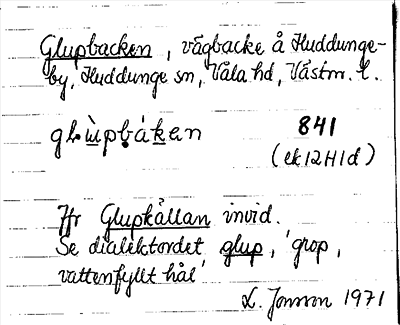 Glupbacken, vägbacke å Huddunge-
by, Huddunge sn, Våla hd, Västm. l.
glùpbákan 841
(ek 12H1d)
Jfr Glupkällan invid.
Se dialektordet glup, 'grop,
vattenfyllt hål'
L. Jonson 1971